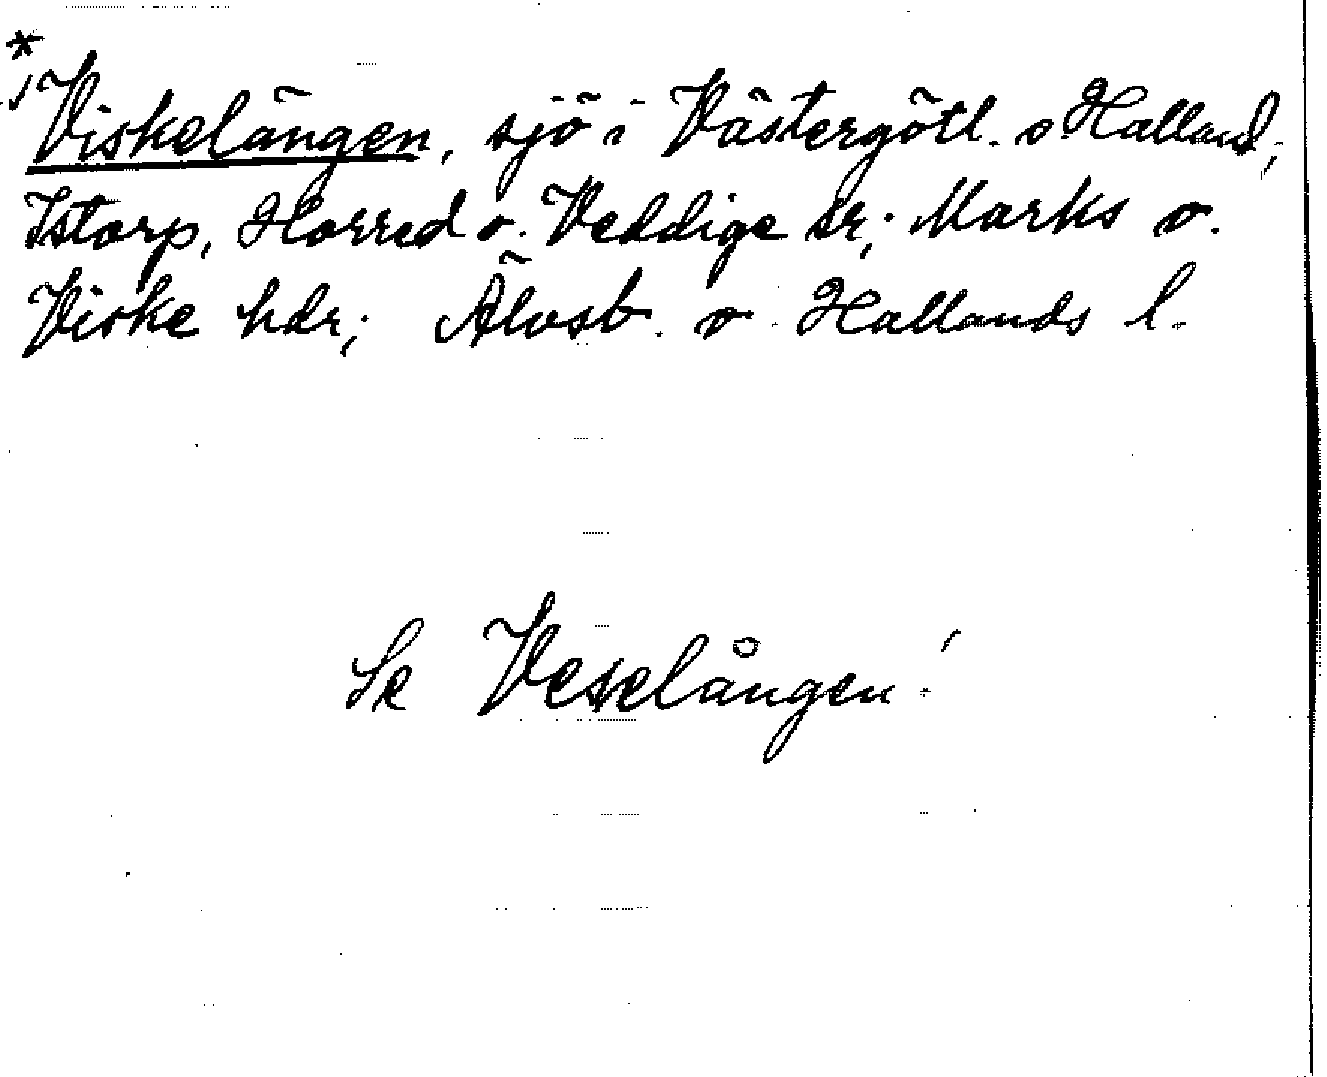 * Viskelängen, sjö i Västergötl. o Halland;
Istorp, Horred o. Veddige sr; Marks o.
Viske hdr; Älvsb. o. Hallands l.
Se Veselången!